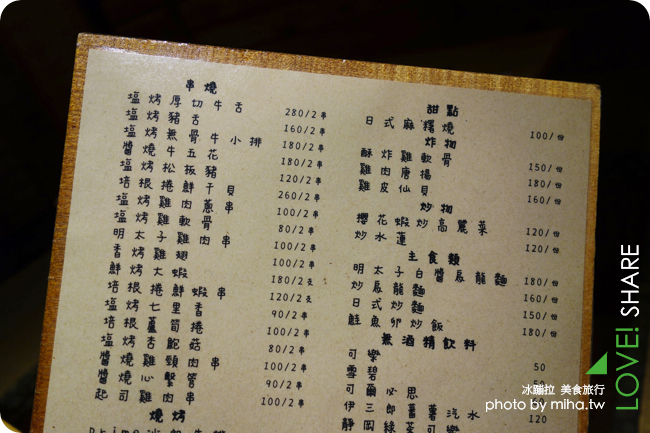 串燒
塩烤厚切牛舌 280/2串
塩烤豬舌 160/2串
塩烤無骨牛小排 180/2串
醬燒牛五花 180/2串
塩烤松扳豬 120/2串
培根捲鮮干貝 260/2串
塩烤雞肉蔥串 100/2串
塩烤雞軟骨 80/2串
明太子雞肉串 100/2串
香烤雞翅 100/2串
鮮烤大蝦 180/2支
培根捲鮮蝦串 120/2支
塩烤七里香 90/2串
培根蘆筍捲 100/2串
塩烤杏鮑菇 80/2串
塩烤雞頸肉 100/2串
醬燒心擊管 90/2串
起司雞肉串 100/2串
燒烤
甜點
日式麻糬燒 100/份
炸物
酥炸雞軟骨 150/份
雞肉唐揚 180/份
雞皮仙貝 160/份
炒物
櫻花蝦炒高麗菜 120/份
炒水蓮 120/份
主食類
明太子白醬烏龍麵 180/份
炒烏龍麵 160/份
日式炒麵 150/份
鮭魚卵炒飯 180/份
無酒精飲料
可樂 50
雪碧
可爾必思 120
伊三郎蕃薯汽水
靜岡綠茶可樂
LOVE! SHARE
冰蹦拉 美食旅行
photo by miha.tw